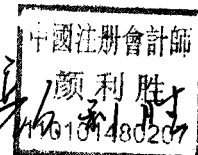 中國注册會計師
颜利胜
110101480207